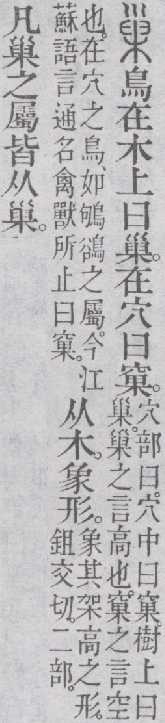 巢鳥在木上曰巢。在穴曰窠。
穴部曰。穴中曰窠。樹上曰
巢。巢之言高也。窠之言空
也。在穴之鳥、如鴝鵒之屬。今江
蘇語言通名禽獸所止曰窠。
从木。象形。
象其架高之形。
鉏交切。二部。
凡巢之屬皆从巢。